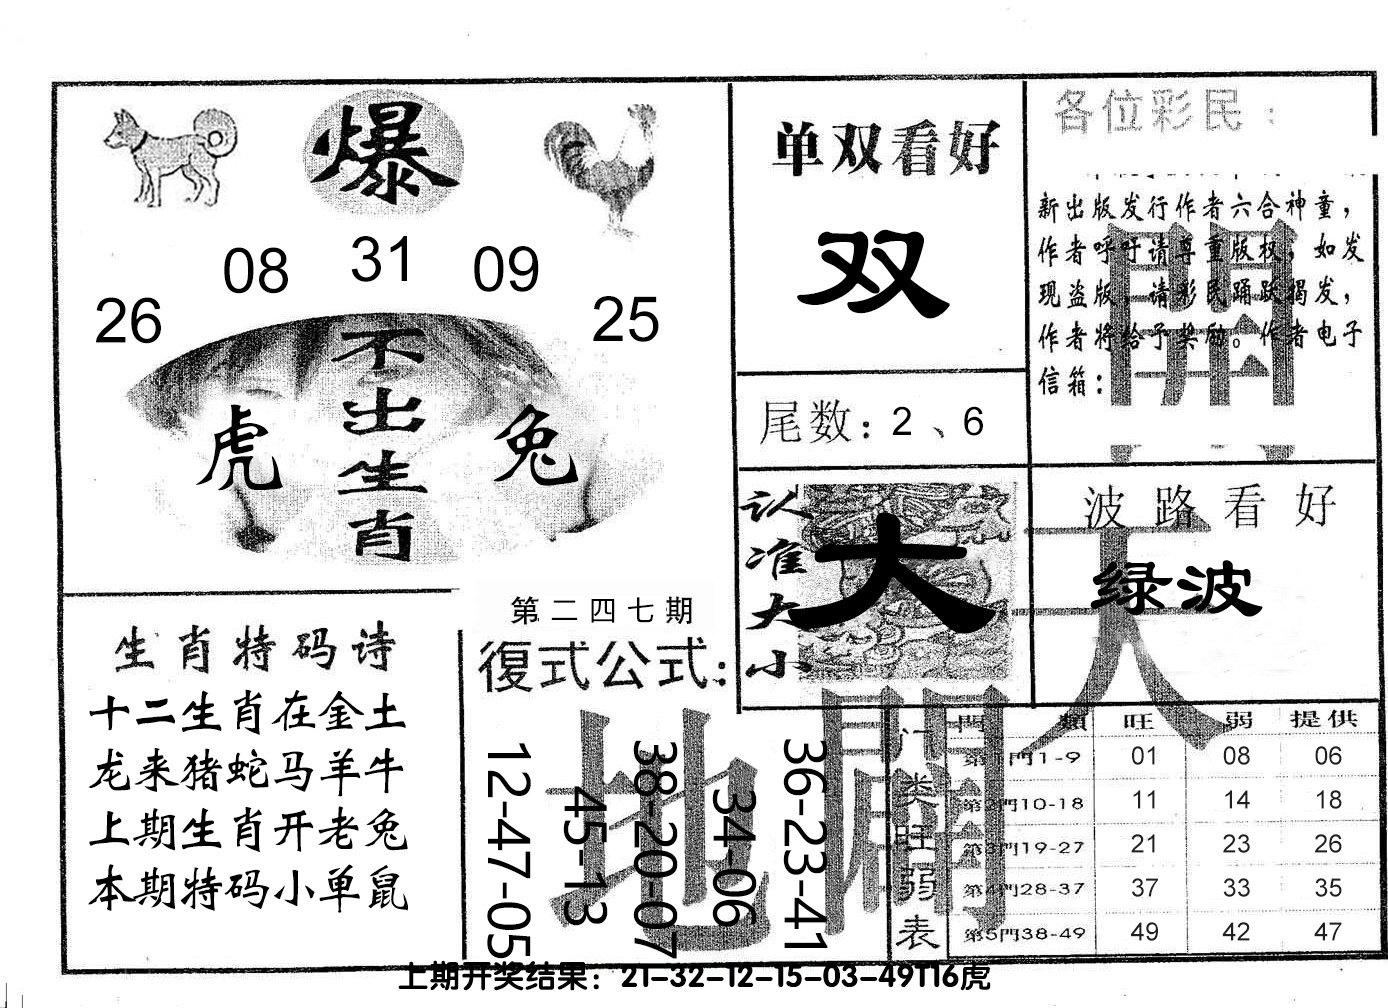 爆
08 31 09
26 25
不出生肖
虎 兔
单双看好
双
尾数：2、6
各位彩民：
新出版发行作者六合神童，
作者呼吁请尊重版权，如发
现盗版，请彩民踊跃揭发，
作者将给予奖励。作者电子
信箱：
認准大小
大
波路看好
绿波
天
地
開
生肖特码诗
十二生肖在金土
龙来猪蛇马羊牛
上期生肖开老兔
本期特码小单鼠
第二四七期
復式公式：
12-47-05
45-13
38-20-07
34-06
36-23-41
门类旺弱表
門類 旺 弱 提供
第1門1-9 01 08 06
第2門10-18 11 14 18
第3門19-27 21 23 26
第4門28-37 37 33 35
第5門38-49 49 42 47
上期开奖结果：21-32-12-15-03-49T16虎